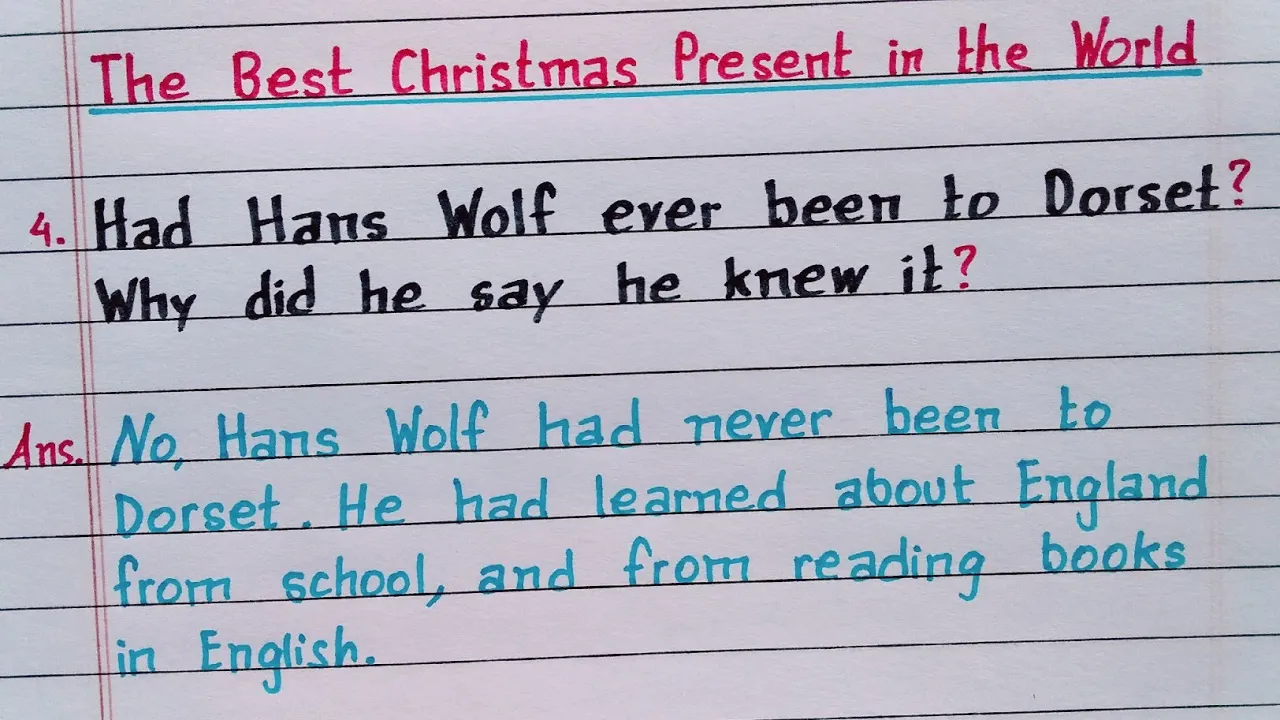 The Best Christmas Present in the World
4. Had Hans Wolf ever been to Dorset?
Why did he say he knew it?
Ans. No, Hans Wolf had never been to
Dorset. He had learned about England
from school, and from reading books
in English.